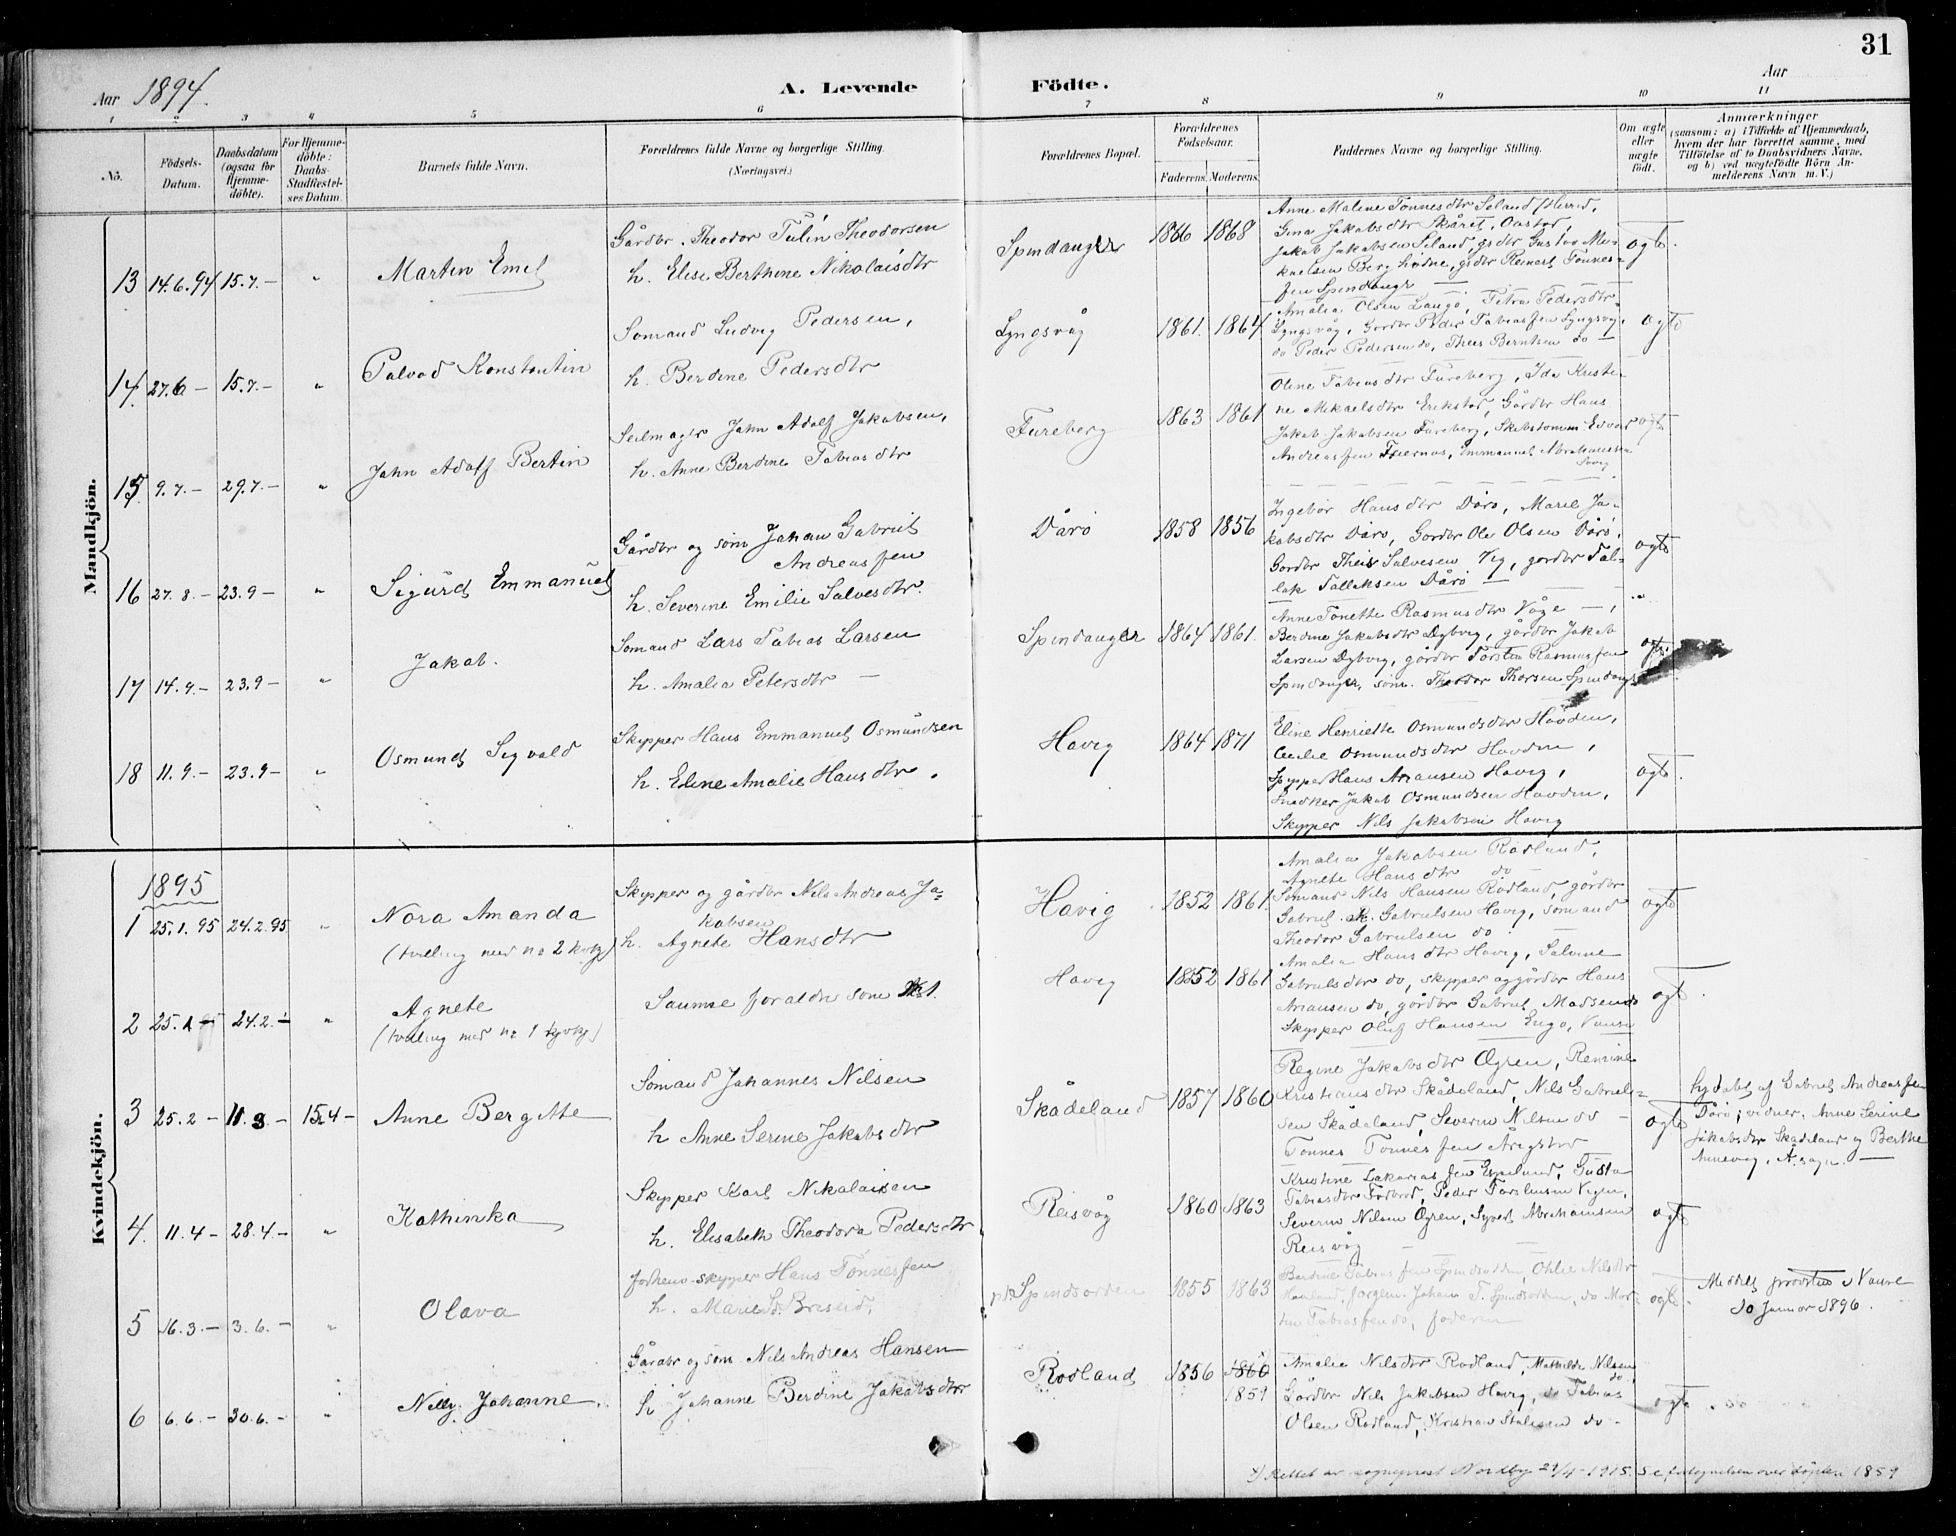 31
Aar 1894.
A. Levende Födte.
Aar
1 2 3 4 5 6 7 8 9 10 11
No.
Födsels-Datum.
Daabsdatum (ogsaa for Hjemme-döbte).
For Hjemme-döbte: Daabs-Stadfæstel-ses Datum
Barnets fulde Navn.
Forældrenes fulde Navne og borgerlige Stilling.
(Næringsvei.)
Forældrenes Bopæl.
Forældrenes Födselsaar.
Faderens. Moderens.
Faddernes Navne og borgerlige Stilling.
Om ægte eller uægte födt.
Anmærkninger
(saasom: a) i Tilfælde af Hjemmedaab,
hvem der har forrettet samme, med
Tilföielse af to Daabsvidners Navne,
og b) ved uægtefödte Börn An-
melderens Navn m. V.)
Mandkjön.
13 14.6.94 15.7.— " Martin Emil
Gårdbr. Theodor Tulin Theodorsen
h. Elise Berthine Nikolaisdtr
Spindanger 1866 1868
Anne Malene Tonnesdtr Seland, Herred,
Gina Jakobsdtr Skåret,
Jakob Jakobsen Seland, grdbr Gustav Mi-
kaelsen Berg hidne, grdbr Reinert Tonnes-
sen Spindangr
ægte.
14 27.6 — 15.7.— " Palvod Konstantin
Somand Ludvig Pedersen,
h. Berdine Pedersdtr
Lyngsvåg 1861. 1864
Amalia Olsen Langø, Petra Pedersdtr
Lyngsvåg, Gårdbr Peder Tobiassen Lyngsvg,
do Peder Pedersen do, Theis Berntsen do —
ægte
15 9.7.— 29.7.— " Jahn Adolf Bertin
Seilmager Jahn Adolf Jakobsen,
h. Anne Berdine Tobiasdtr
Fureberg 1863 1861
Oline Tobiasdtr Fureberg, Ida Kristi-
ne Mikaelsdtr Erikstad, Gårdbr Hans
Jakob Jakobsen Fureberg, Skibstømm Edvar
Andreassen, Emmanuel Abrahamsen
ægte
16 27.8.— 23.9 — " Sigurd Emmanuel
Gårdbr og søm Johan Gabriel
Andreassen
h. Severine Emilie Salvesdtr.
Dårø 1858 1856
Ingebor Hansdtr Dårø, Marie Ja-
kobsdtr Dårø, Gordbr Ole Olsen Dårø,
Gordbr Theis Salvesen Vig, gordbr Tal-
lak Tallaksen Dårø —
ægte
17 14.9.— 23.9 — " Jakob.
Somand Lars Tobias Larsen
h. Amalia Petersdtr —
Spindanger 1864 1861.
Anne Tonette Rasmusdtr Våge —,
Berdine Jakobsdtr Dyborg, gårdbr Jakob
Larsen Dyborg, gårdbr Torstein Rasmussen
Spindanger, søm. Theodor Thorsen Spindangr
ægte.
18 11.9.— 23.9 — " Osmund Sigvald
Skypper Hans Emmanuel Osmundsen
h. Eline Amalie Hansdtr.
Havig 1864 1871
Eline Henriette Osmundsdtr Hovden,
Cecilie Osmundsdtr Hovden,
Skypper Hans Aransen Havig,
Snedker Jakob Osmundsen Hovden,
Skypper Nils Jakobsen Havig
ægte.
Kvindekjön.
1895
1 25.1.95 24.2.95 " Nora Amanda
(tvilling med no 2 kvkj)
Skypper og gårdbr Nils Andreas Ja-
kobsen
h. Agnete Hansdtr
Havig 1852 1861.
Amalia Jakobsen Rødland,
Agnete Hansdtr do
Somand Nils Hansen Rødland, gårdbr
Gabriel Gabrielsen Havig, somand
Theodor Gabrielsen do
ægte
2 25.1 — 24.2.— " Agnete
(tvilling med no 1 kvkj)
Samme foraldre som № 1.
Havig 1852 1861
Amalia Hansdtr Havig, Salvine
Gabrielsdtr do, skypper og gårdbr Hans
Aransen do, gårdbr Gabriel Madsen do
Skypper Oluf Hansen Engø, Vanse
ægt.
3 25.2 — 11.3.— 15.4 — Anne Bergitte
Somand Johannes Nilsen
h Anne Serine Jakobsdtr
Skådeland 1857 1860
Regine Jakobsdtr Øgren, Renrine
Kristiansdtr Skådeland, Nils Gabriel-
sen Skådeland, Severin Nilsen do —
Tonnes Tonnessen Åregstod
ægte
hjdøbt af Gabriel Andreassen
Dårø; vidner: Anne Serine
Jakobsdtr Skådeland og Berthe
4 11.4 — 28.4.— " Kathinka
Skypper Karl Nikolaisen
h. Elisabeth Theodora Pedersdtr
Reisvåg 1860 1863
Kristine Zakariassen, Gusta
Tobiasdtr, Peder Vigen,
Severin Nilsen Øgren, Syvert Abrahamsen
Reisvåg
ægte
5 16.3.— 3.6.— " Olava
forhenv. skypper Hans Tonnessen
h. Marie Bruseid.
Spindsodden 1855 1863
Berdine Tobiassen Spindsodden, Othlie Nilsdtr
Johan T. Spindsodden, do
Tobiassen do, faderen
ægte.
Meddelt i Vanse
10 Januar 1896.
6 6.6.— 30.6.— " Nelly Johanne.
Gårdbr og søm. Nils Andreas Hansen
h Johanne Berdine Jakobsdtr
Rødland 1856 1860
1859
Amalie Nilsdtr Rødland, Mathilde Nilsen
do,
Gårdbr Nils Jakobsen Havig, do Tobias
Olsen Rødland, Kristian Stalesen do —
ægte
x) Rettet av sogneprest Nordby 29/4-1915. Se fortegnelsen over døpte 1859